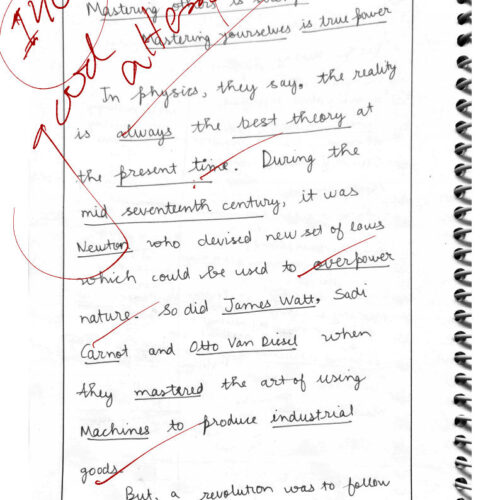 good attempt
Mastering others is
Mastering yourselves is true power
In physics, they say, the reality
is always the best theory at
the present time. During the
mid seventeenth century, it was
Newton who devised new set of laws
which could be used to overpower
nature. So did James Watt, Sadi
Carnot and Otto Van Diesel when
they mastered the art of using
Machines to produce industrial
goods.
But, a revolution was to follow